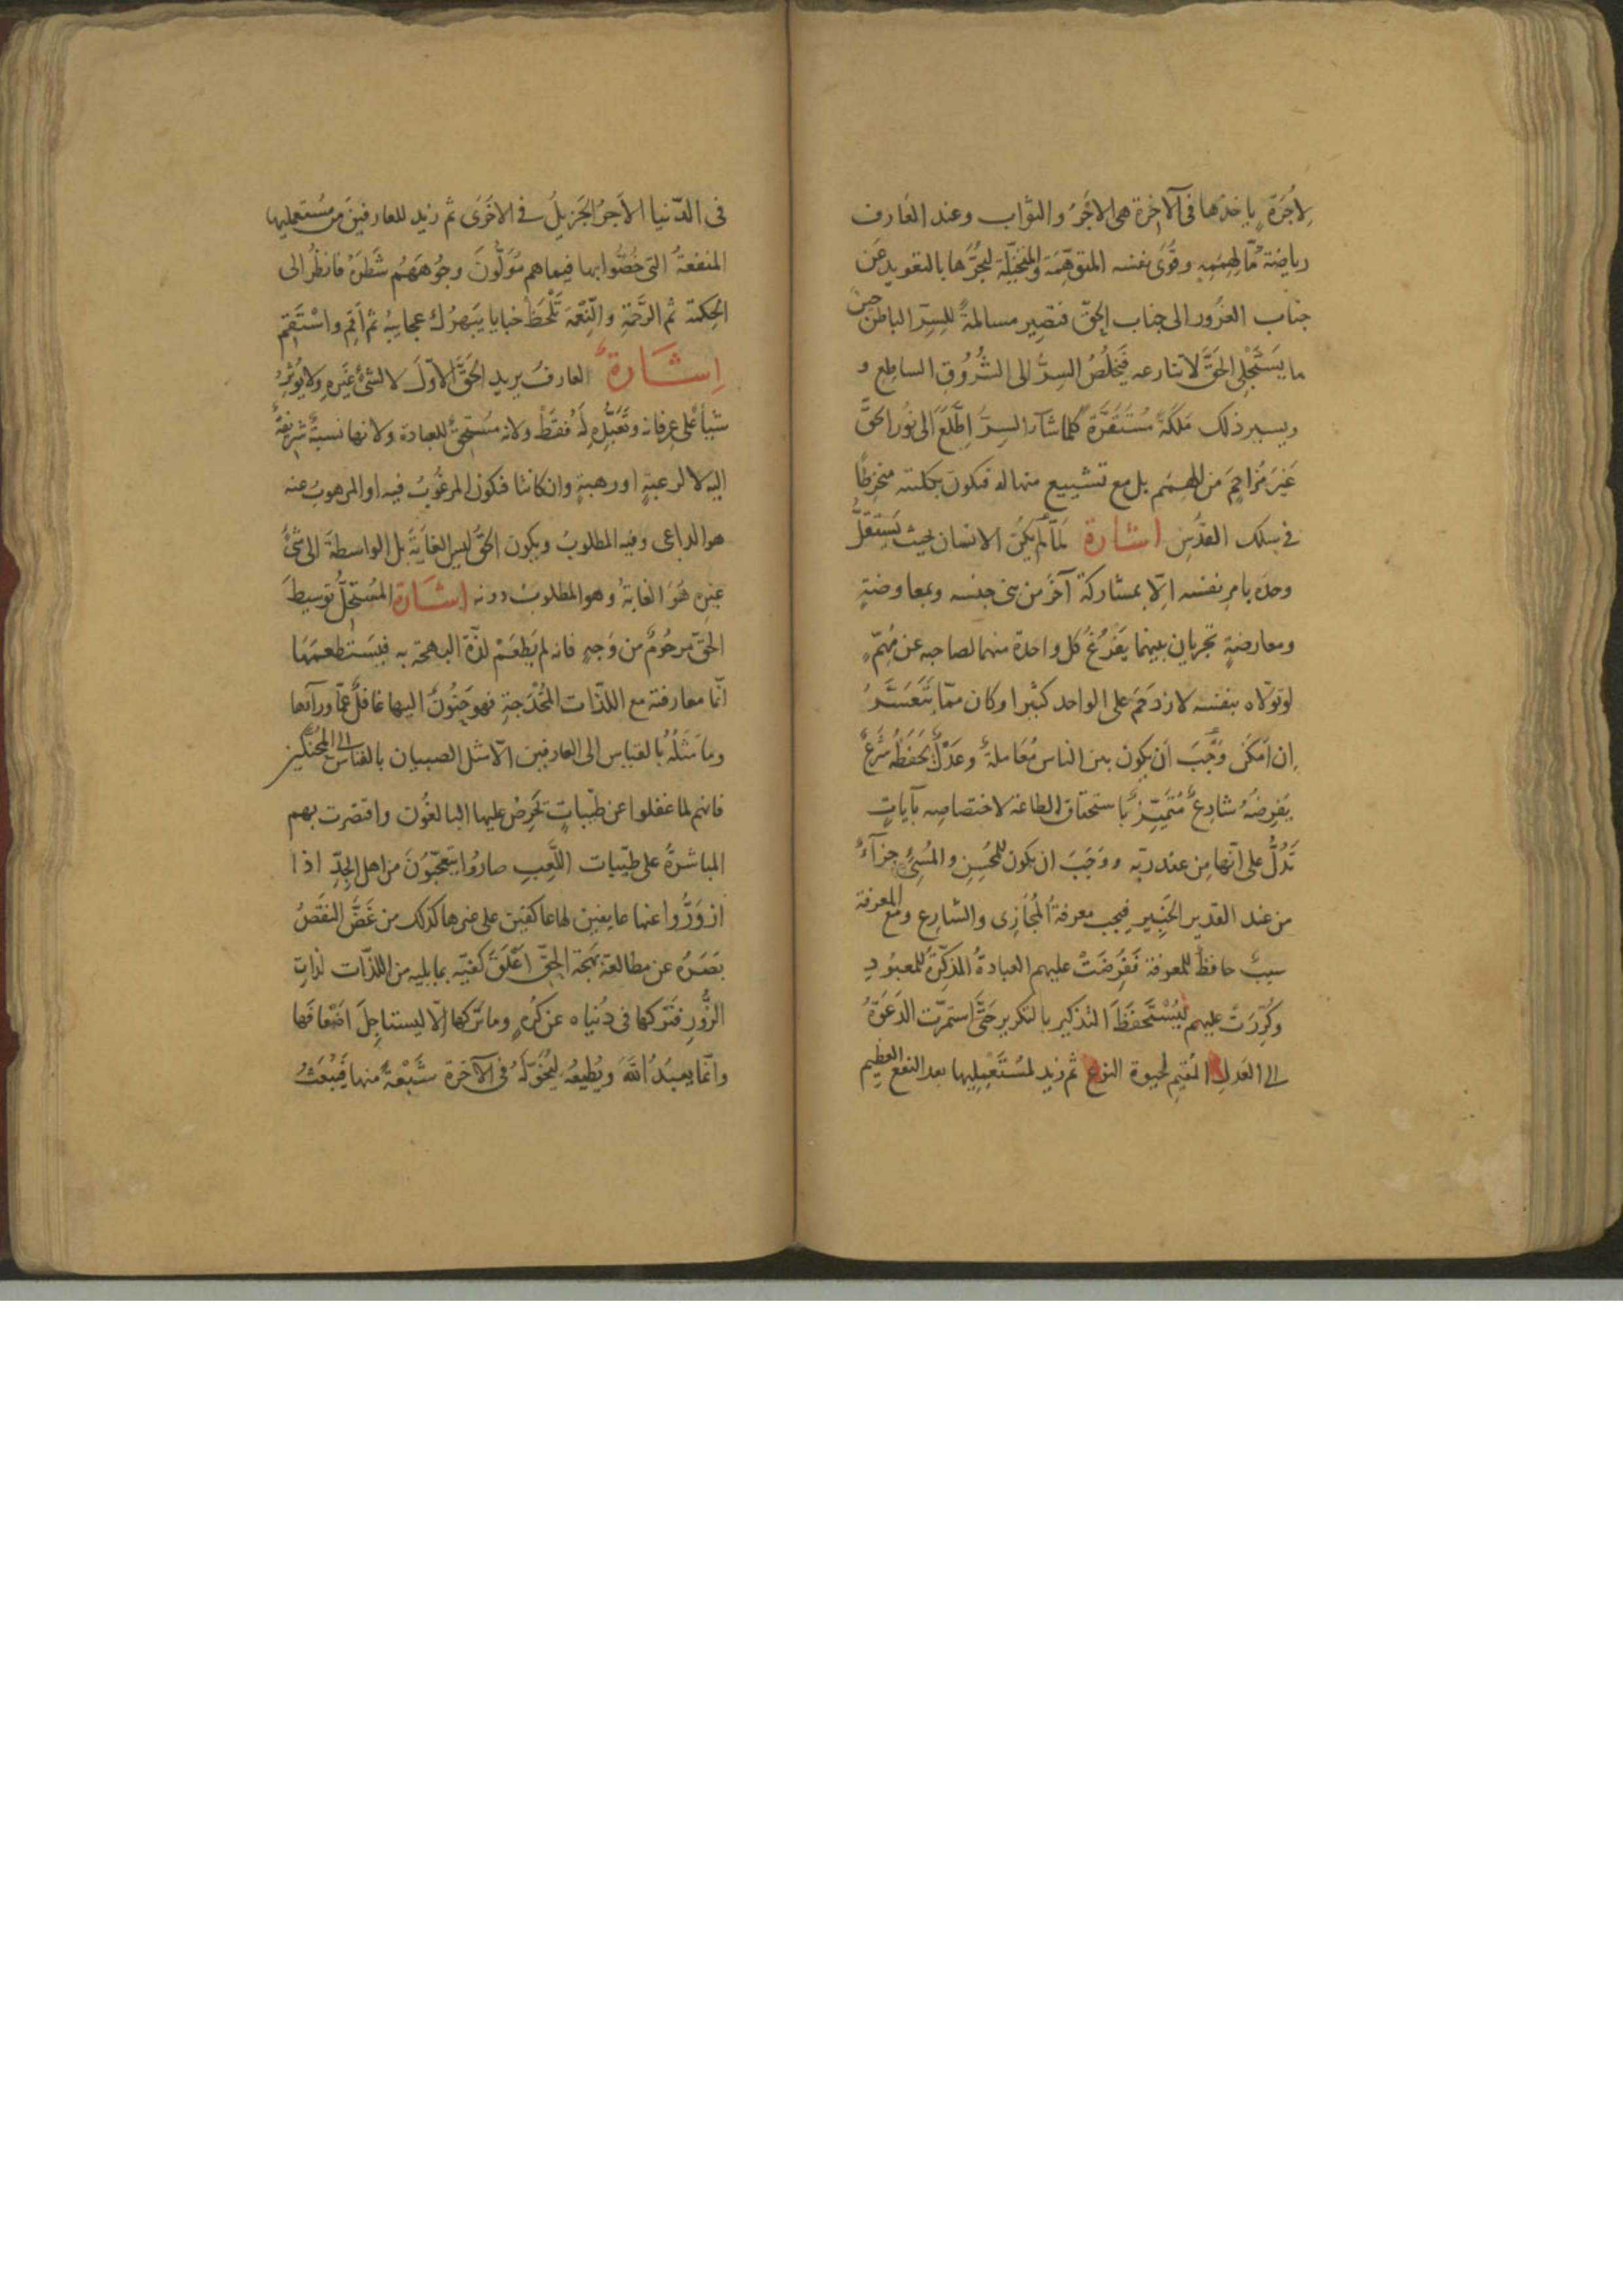 لِاُجْرَةٍ ياخذها فى الآخرة هى الاَجْرُ والثواب وعند العَارف
رياضَة مَّا لِهِمَمِهِ وقُوَى نفسه المتوهّمة والمتخيّلة ليجُرَّها بالتعويد عَن
جناب الغرور الى جناب الحقّ فتصير مسالمةً للسِّرِّ الباطن حين
ما يَسْتَجْلِى الحَقَّ لا تنازعه فَيَخْلُصُ السِرُّ الى الشُّرُوقِ الساطع و
ويصير ذلك مَلَكَةً مُسْتَقَرَّةً كلما شآء السِرُّ اِطَّلَعَ الى نُور الحقّ
غَيْرَ مُزاحِمٍ مَن الهِمَمِ بل مع تشييع منها له فيكون بكلّيته منخرطًا
فى سلك القدُسِ اشارة لَمّا لَم يكُن الانسان بحيث يَستَقلُّ
وحده بامرِ نفسه اِلّا بمشاركة آخَرَ من بَنى جنسه وبمعاوضةٍ
ومعارضةٍ تجريان بينهما يَفْرُغُ كل واحدة منهما لصاحبه عن مُهِمٍّ
لو تولّاه بنفسه لازدَحَمَ على الواحد كثيرا وكان ممّا يَتَعَسَّرُ
اِن اَمكَنَ وَجَبَ اَن يكون بين الناس مُعَاملةٌ وعَدْلٌ يَحفَظُه شَرْعٌ
يَفرِضُهُ شارِعٌ مُتَمَيِّزٌ باستحقاق الطاعة لاختصاصه بآياتٍ
تَدُلُّ على اَنّها مِن عند ربّه ووَجَبَ ان يكون للمُحْسِنِ والمُسِئِ جزآءٌ
من عند القدير الخَبِير فيجب معرفةُ المُجَازِى والشارِع ومع المعرفة
سببٌ حافظٌ للمعرفة فَفُرِضَتْ عليهم العبادةُ المذكِّرَةُ للمعبُودِ
وكُرِّرَتْ عليهم ليُسْتَحفَظَ التذكير بالتكرير حَتّى استمرّت الدَعوَةُ
الى العَدلِ المُقِيمِ لحيوة النوع ثم زيد لمُسْتَعْمِلِيها بعد النفع العظيم
فى الدّنيا الاَجرُ الجَزيلُ فى الاخرى ثم زيد للعارفينَ من مُستعمليها
المنفعةُ التى خُصُّوا بها فيما هم مُوَلُّونَ وجُوهَهُم شَطرَهُ فانظُر الى
الحِكمة ثم الرَّحمَةِ والنّعمَة تَلْحَظْ خبايا يَبهَرُكَ عجايبُه ثم اَقِم واسْتَقِم
اِشَارةٌ العارفُ يريد الحَقَّ الاوّلَ لا لشئٍ غَيْرِهِ ولا يُوثِرُ
شيأً على عِرفانه وتَعَبُّدِهِ لَهُ فقَطْ ولانه مُستحِقٌّ للعبادة ولانها نسبةٌ شريفةٌ
اليه لا لرغبةٍ اورهبةٍ وان كانتا فيكون المرغُوبُ فيه او المرهوبُ عنه
هو الداعى وفيه المطلوبُ ويكون الحَقُّ ليس الغايَةَ بل الواسطةَ الى شئٍ
غَيْرِه هُوَ الغايةُ وهو المطلوبُ دونه اِشَارَة المُستَحِلُّ توسِيطَ
الحَقّ مرحُومٌ من وَجهٍ فانه لم يَطعَمْ لذّةَ البهجة به فيَستَطعِمَهَا
انّما معارفته مع اللذّات المُخْدَجةِ فهو حَنُونٌ اليها غافلٌ عمّا ورآءها
وما مَثَلُهُ بالقياس الى العارفين الّا مثل الصبيان بالقياس الى المُحَنَّكين
فانهم لما غفلوا عن طيّباتٍ يَحرِصُ عليها البالغُون واقتصرت بهم
المباشرةُ على طيّبات اللَّعِبِ صاروا يتعجّبُونَ من اهل الجِدِّ اذا
ازوَرُّوا عنها عايفين لها عاكفين على غيرها كذلك من غَضَّ النقصُ
بَصَرَهُ عن مطالعة بَهجَة الحقّ اَعْلَقَ كفّيَه بما يليه من اللذّات لذاتِ
الزُّورِ فتركها فى دُنياه عن كُرْهٍ وما تركها اِلّا ليستاجِلَ اَضْعَافَها
وانّما يعبُدُ اللهَ ويُطِيعُه ليُخَوِّلَهُ فى الآخرة شِبْعَهُ منها فَيُبْعَثُ